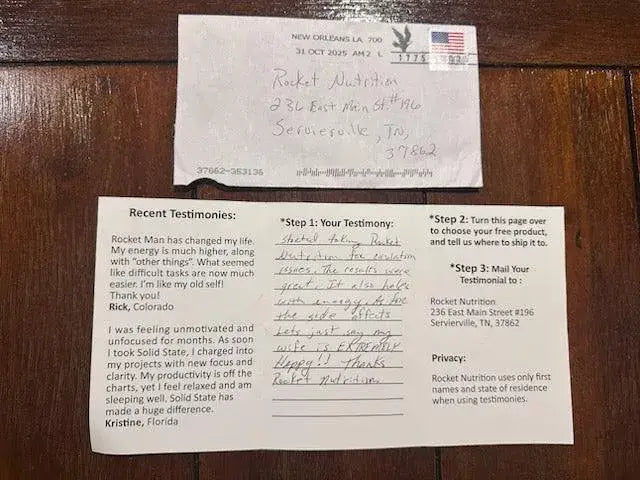 NEW ORLEANS LA 700
31 OCT 2025 AM 2 L
1775
Rocket Nutrition
236 East Main St. #196
Servierville, TN,
37862
37862-353136
Recent Testimonies:
Rocket Man has changed my life.
My energy is much higher, along
with "other things". What seemed
like difficult tasks are now much
easier. I'm like my old self!
Thank you!
Rick, Colorado
I was feeling unmotivated and
unfocused for months. As soon
I took Solid State, I charged into
my projects with new focus and
clarity. My productivity is off the
charts, yet I feel relaxed and am
sleeping well. Solid State has
made a huge difference.
Kristine, Florida
*Step 1: Your Testimony:
started taking Rocket
Nutrition for
issues. The results were
great. It also helps
with energy. As for
the side effects
Lets just say my
wife is EXTREMELY
Happy!! Thanks
Rocket Nutrition
*Step 2: Turn this page over
to choose your free product,
and tell us where to ship it to.
*Step 3: Mail Your
Testimonial to :
Rocket Nutrition
236 East Main Street #196
Servierville, TN, 37862
Privacy:
Rocket Nutrition uses only first
names and state of residence
when using testimonies.